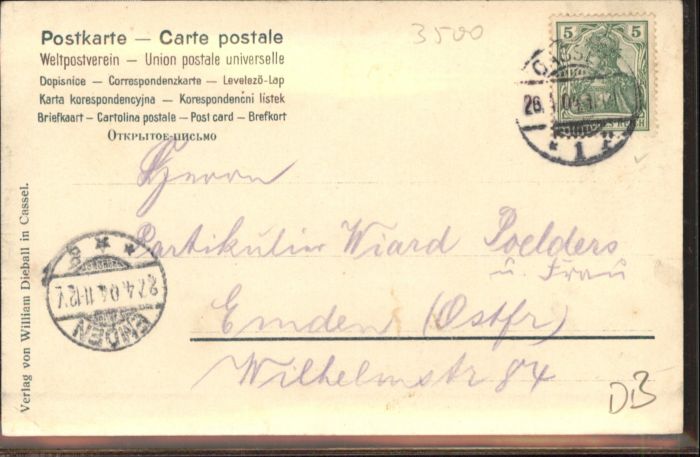 Postkarte — Carte postale
Weltpostverein — Union postale universelle
Dopisnice — Correspondenzkarte — Levelező-Lap
Karta korespondencyjna — Korespondenční lístek
Briefkaart — Cartolina postale — Post card — Brefkort
Открытое письмо
3500
5 5
CASSEL
26.
1
Herrn
Partikulier Wiard Poelders
u. Frau
Emden (Ostfr)
Wilhelmstr 84
EMDEN
27.4.04.11-12V.
Verlag von William Dieball in Cassel.
DB